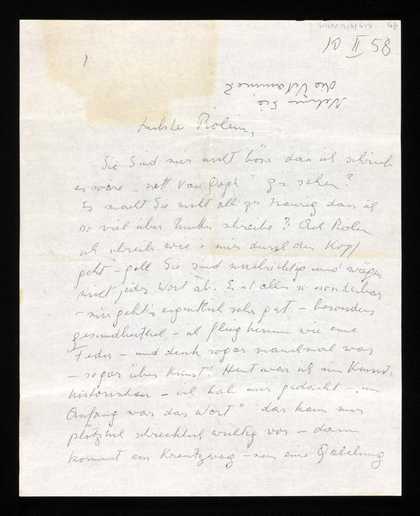 10 II 58
Nehmen Sie
das Vitamine?
Liebste Rolein,
Sie sind mir nicht böse das ich schrieb
es wäre „nett Van Gogh" zu sehen?
Es macht Sie nicht all zu traurig das ich
so viel über schreibe? Ach Rolein
ich schreib wie's mir durch den Kopf
geht – gell Sie sind und wägen
nicht jedes Wort ab. Es ist alles so sonderbar
– mir geht's eigentlich sehr gut – besonders
gesundheitlich – ich flieg herum wie eine
Feder – und denk sogar manchmal was
– sogar über „Kunst" Heut war ich im Kunst-
historischen – ich hab mir gedacht – „im
Anfang war das Wort" das kam mir
plötzlich schrecklich wichtig vor – dann
kommt ein Kreutzweg – nur eine Gabelung